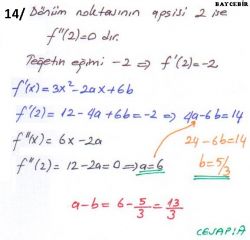 BAYCEBİR
14/ Dönüm noktasının apsisi 2 ise
f''(2)=0 dır.
Teğetin eğimi -2 ⇒ f'(2)=-2
f'(x)=3x²-2ax+6b
f'(2)=12-4a+6b=-2 ⇒ 4a-6b=14
f''(x)=6x-2a
24-6b=14
f''(2)=12-2a=0 ⇒ a=6
b=5/3
a-b=6-5/3=13/3
CEVAP:A